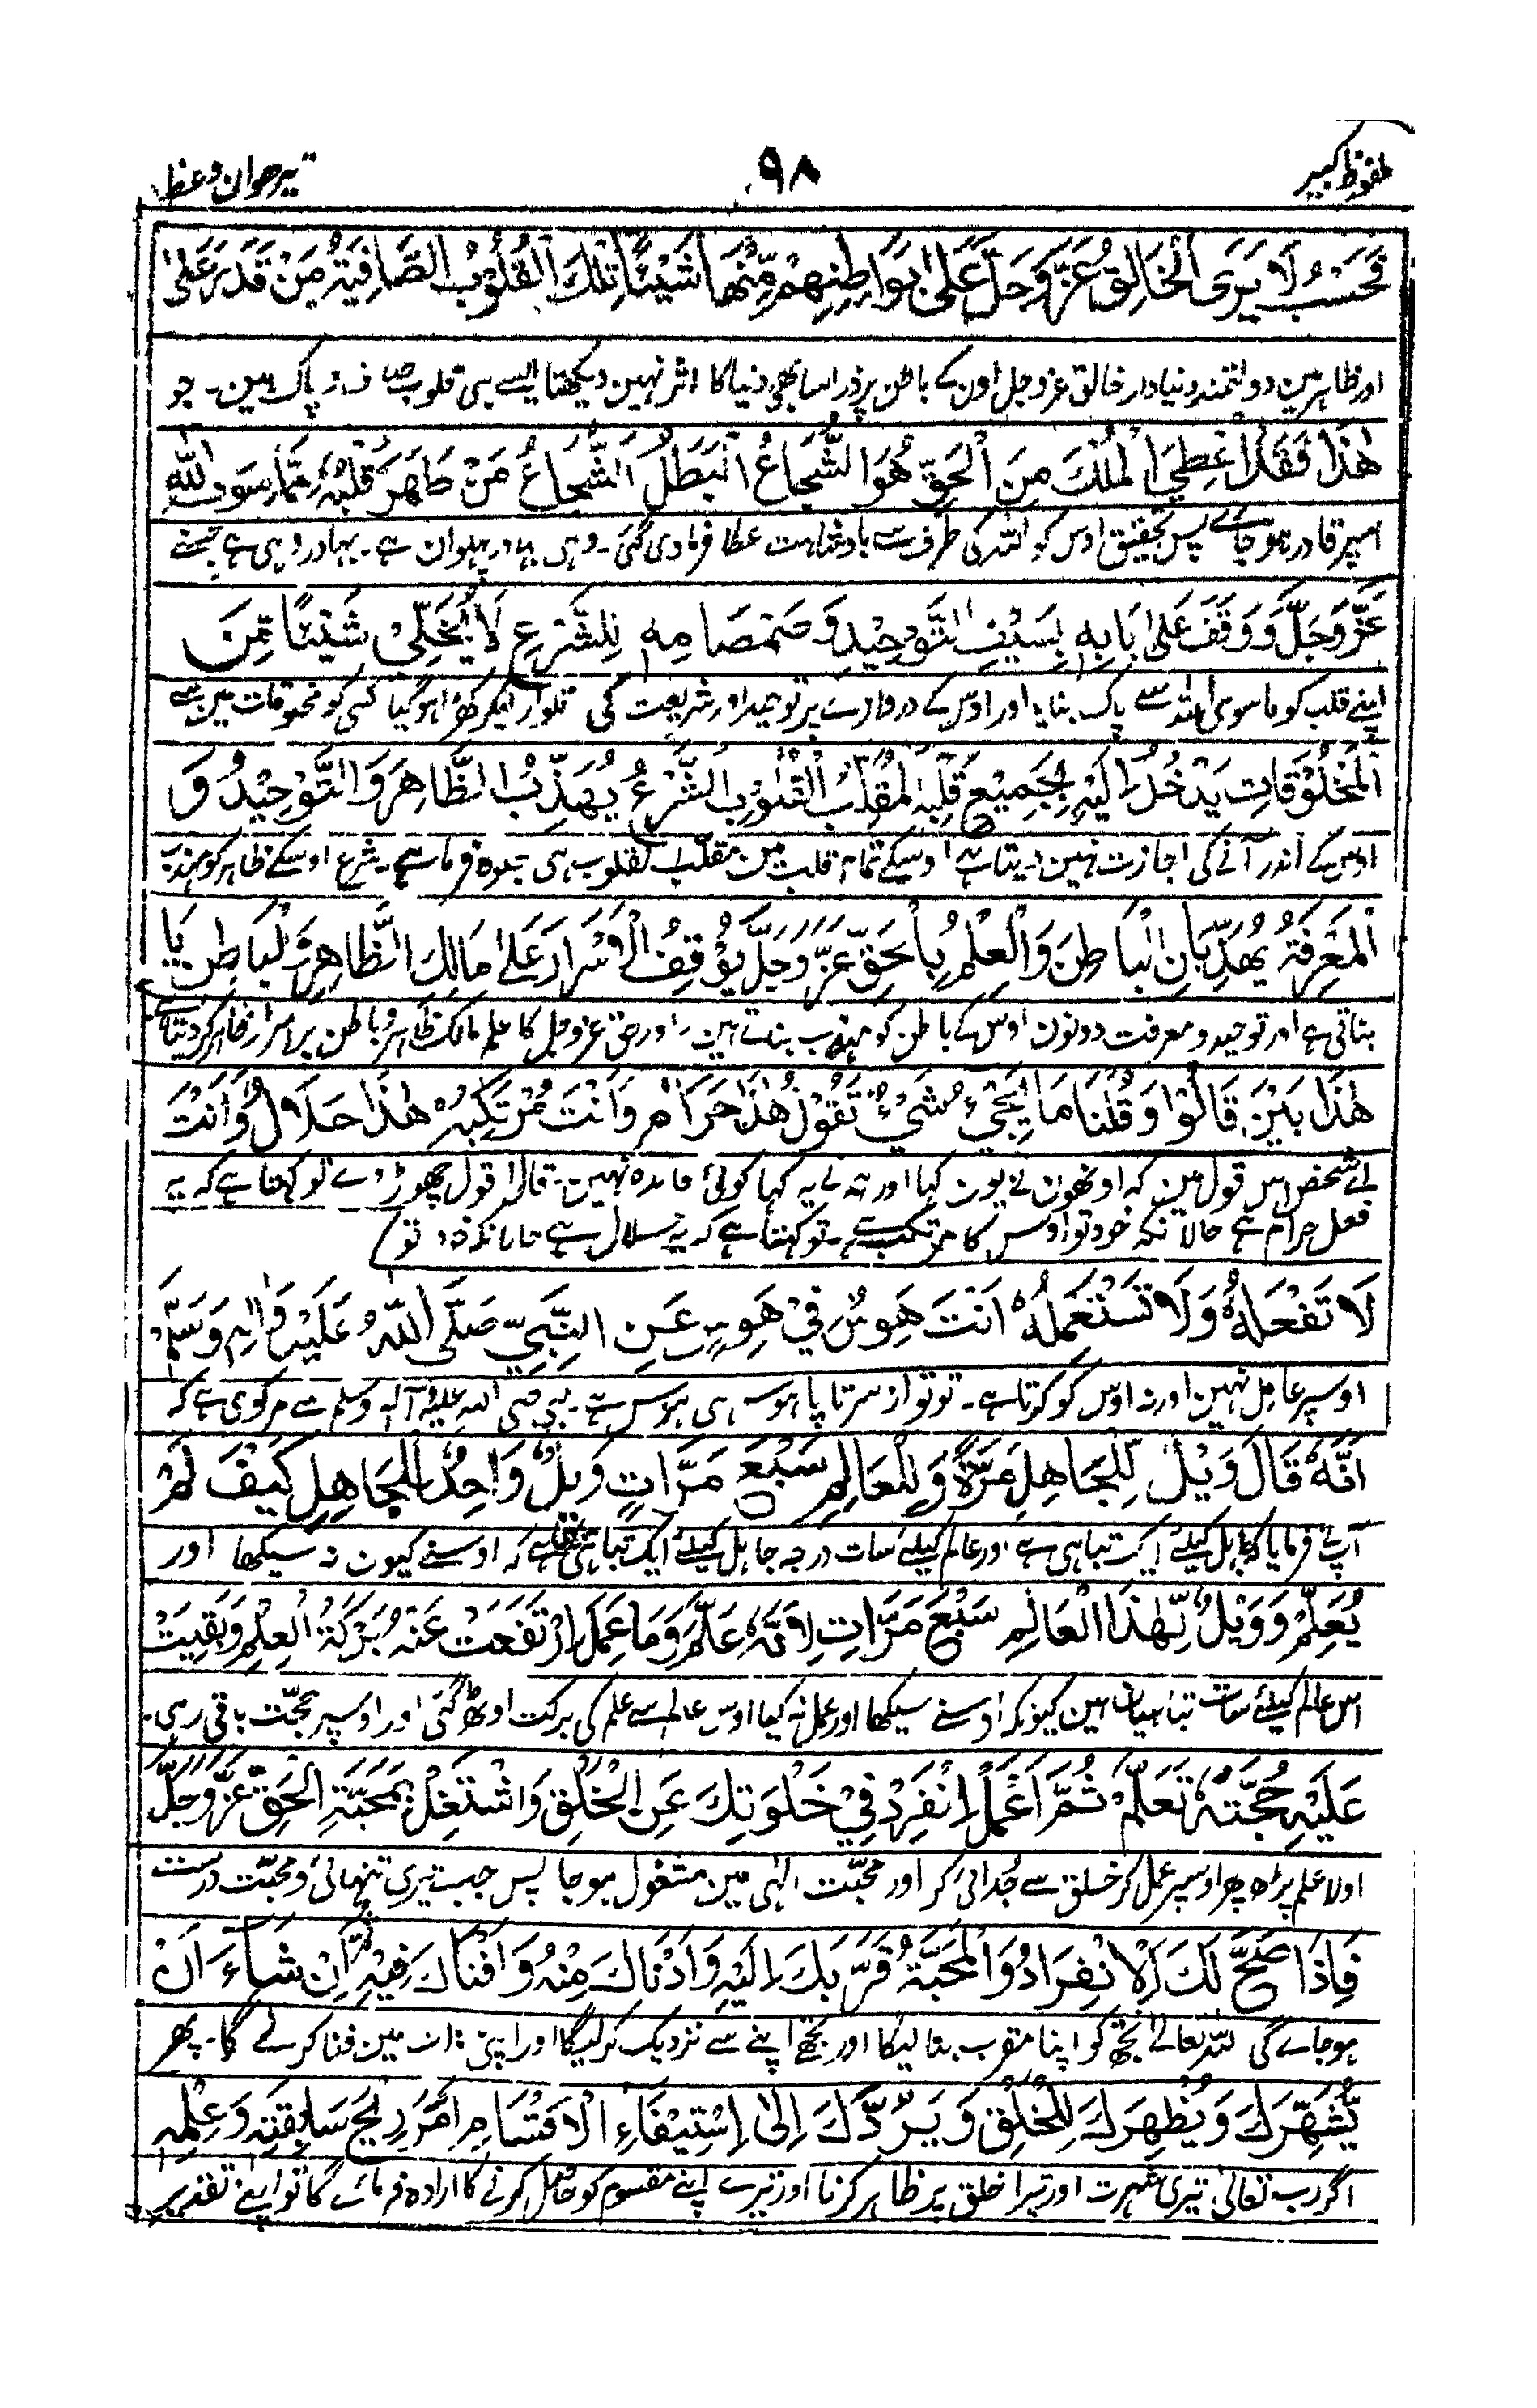 ملفوظ کبیر
۹۸
تیرھوان وعظ
فَحَسْبُ لَا يَرَى الْخَالِقُ عَزَّ وَجَلَّ عَلَىٰ بَوَاطِنِهِمْ مِّنْهَا شَيْئًا تِلْكَ الْقُلُوْبُ الصَّافِيَةُ مَنْ قَدَرَ عَلىٰ
اور ظاہر مین دولتمند دنیادار خالق عزوجل اون کے باطن پر ذراسا بھی دنیا کا اثر نہین دیکھتا ایسے ہی قلوب صاف و پاک ہین۔ جو
هٰذَا فَقَدْ اُعْطِيَ الْمُلْكَ مِنَ الْحَقِّ هُوَ الشُّجَاعُ الْبَطَلُ الشُّجَاعُ مَنْ طَهَرَ قَلْبَهٗ مِمَّا سِوَى اللّٰهِ
اسپر قادر ہو جائے پس تحقیق اوس کو اللہ کی طرف سے بادشاہت عطا فرما دی گئی۔ وہی بہادر پہلوان ہے۔ بہادر وہی ہے جسنے
عَزَّ وَجَلَّ وَ وَقَفَ عَلىٰ بَابِهٖ بِسَيْفِ التَّوْحِيْدِ وَ صَمْصَامِهٖ لِلشَّرْعِ لَا يُخَلِّيْ شَيْئًا مِّنَ
اپنے قلب کو ماسوی اللہ سے پاک بنایا اور اوس کے دروازے پر توحید اور شریعت کی تلوار لیکر کھڑا ہو گیا کسی کو مخلوقات مین سے
الْمَخْلُوْقَاتِ يَدْخُلُ اِلَيْهِ بِجَمِيْعِ قَلْبِهٖ لِمُقَلِّبِ الْقُلُوْبِ الشَّرْعُ يُهَذِّبُ الظَّاهِرَ وَ التَّوْحِيْدُ وَ
اوس کے اندر آنے کی اجازت نہین دیتا ہے اوسکے تمام قلب مین مقلب القلوب ہی جلوہ فرما ہے۔ شرع اوسکے ظاہر کو مہذب
الْمَعْرِفَةُ يُهَذِّبَانِ الْبَاطِنَ وَ الْعِلْمُ بِالْحَقِّ عَزَّ وَجَلَّ يُوْقِفُ الْاَسْرَارَ عَلىٰ مَالِكِ الظَّاهِرِ وَ الْبَاطِنِ يَا
بناتی ہے اور توحید و معرفت دونون اوس کے باطن کو مہذب بناتے ہین۔ اور حق عزوجل کا علم مالک ظاہر و باطن پر اسرار ظاہر کر دیتا ہے
هٰذَا بَيْنَ قَالُوْا وَ قُلْنَا مَا يَجِيْءُ شَيْءٌ تَقُوْلُ هٰذَا حَرَامٌ وَ اَنْتَ مُرْتَكِبُهٗ هٰذَا حَلَالٌ وَ اَنْتَ
اے شخص اس قول مین کہ اونھون نے یون کہا اور ہم نے یہ کہا کوئی فائدہ نہین۔ قال اقول چھوڑ دے تو کہتا ہے کہ یہ
فعل حرام ہے حالانکہ خود تو اوس کا مرتکب ہے۔ تو کہتا ہے کہ یہ حلال ہے حالانکہ خود تو
لَا تَفْعَلُهٗ وَ لَا تَسْتَعْمِلُهٗ اَنْتَ هَوِسٌ فِيْ هَوِسٍ عَنِ النَّبِيِّ صَلَّى اللّٰهُ عَلَيْهِ وَ اٰلِهٖ وَسَلَّمَ
اوسپر عامل نہین اور نہ اوس کو کرتا ہے۔ تو تو از سرتا پا ہوس ہی ہوس ہے۔ نبی صلی اللہ علیہ و آلہ وسلم سے مروی ہے کہ
اَنَّهٗ قَالَ وَيْلٌ لِّلْجَاهِلِ مَرَّةً وَ لِلْعَالِمِ سَبْعَ مَرَّاتٍ وَيْلٌ وَّاحِدٌ لِلْجَاهِلِ كَيْفَ لَمْ
آپنے فرمایا کہ جاہل کیلئے ایک تباہی ہے اور عالم کیلئے سات درجہ جاہل کیلئے ایک تباہی ہے کہ اوسنے کیون نہ سیکھا اور
يُعَلِّمْ وَ وَيْلٌ لِّهٰذَا الْعَالِمِ سَبْعَ مَرَّاتٍ لِاَنَّهٗ عَلِمَ وَ مَا عَمِلَ اِرْتَفَعَتْ عَنْهُ بَرَكَةُ الْعِلْمِ وَ بَقِيَتْ
اس عالم کیلئے سات تباہیان ہین کیونکہ اوسنے سیکھا اور عمل نہ کیا اوس عالم سے علم کی برکت اوٹھ گئی اور اوسپر حجت باقی رہی۔
عَلَيْهِ حُجَّتُهٗ تَعَلَّمْ ثُمَّ اعْمَلْ اِنْفَرِدْ فِيْ خَلْوَتِكَ عَنِ الْخَلْقِ وَ اشْتَغِلْ بِمَحَبَّةِ الْحَقِّ عَزَّ وَجَلَّ
اولا علم پڑھ پھر اوسپر عمل کر خلق سے جدائی کر اور محبت الٰہی مین مشغول ہو جا پس جب تیری تنہائی و محبت درست
فَاِذَا صَحَّ لَكَ الْاِنْفِرَادُ وَ الْمَحَبَّةُ قَرَّبَكَ اِلَيْهِ وَ اَدْنَاكَ مِنْهُ وَ اَفْنَاكَ فِيْهِ ثُمَّ اِنْ شَآءَ اَنْ
ہو جائے گی اللہ تعالے تجھ کو اپنا مقرب بنا لیگا اور تجھے اپنے سے نزدیک کر لیگا اور اپنی ذات مین فنا کر لے گا۔ پھر
يُّشَهِّرَكَ وَ يُظْهِرَكَ لِلْخَلْقِ وَ يَرُدَّكَ اِلىٰ اِسْتِيْفَاءِ الْاَقْسَامِ اَمَرَ رِيْحَ سَابِقَتِهٖ وَ عِلْمِهٖ
اگر رب تعالیٰ تیری شہرت اور تیرا خلق پر ظاہر کرنا اور تیرے اپنے مقسوم کو حاصل کرنے کا ارادہ فرمائے گا تو اپنے تقدیر